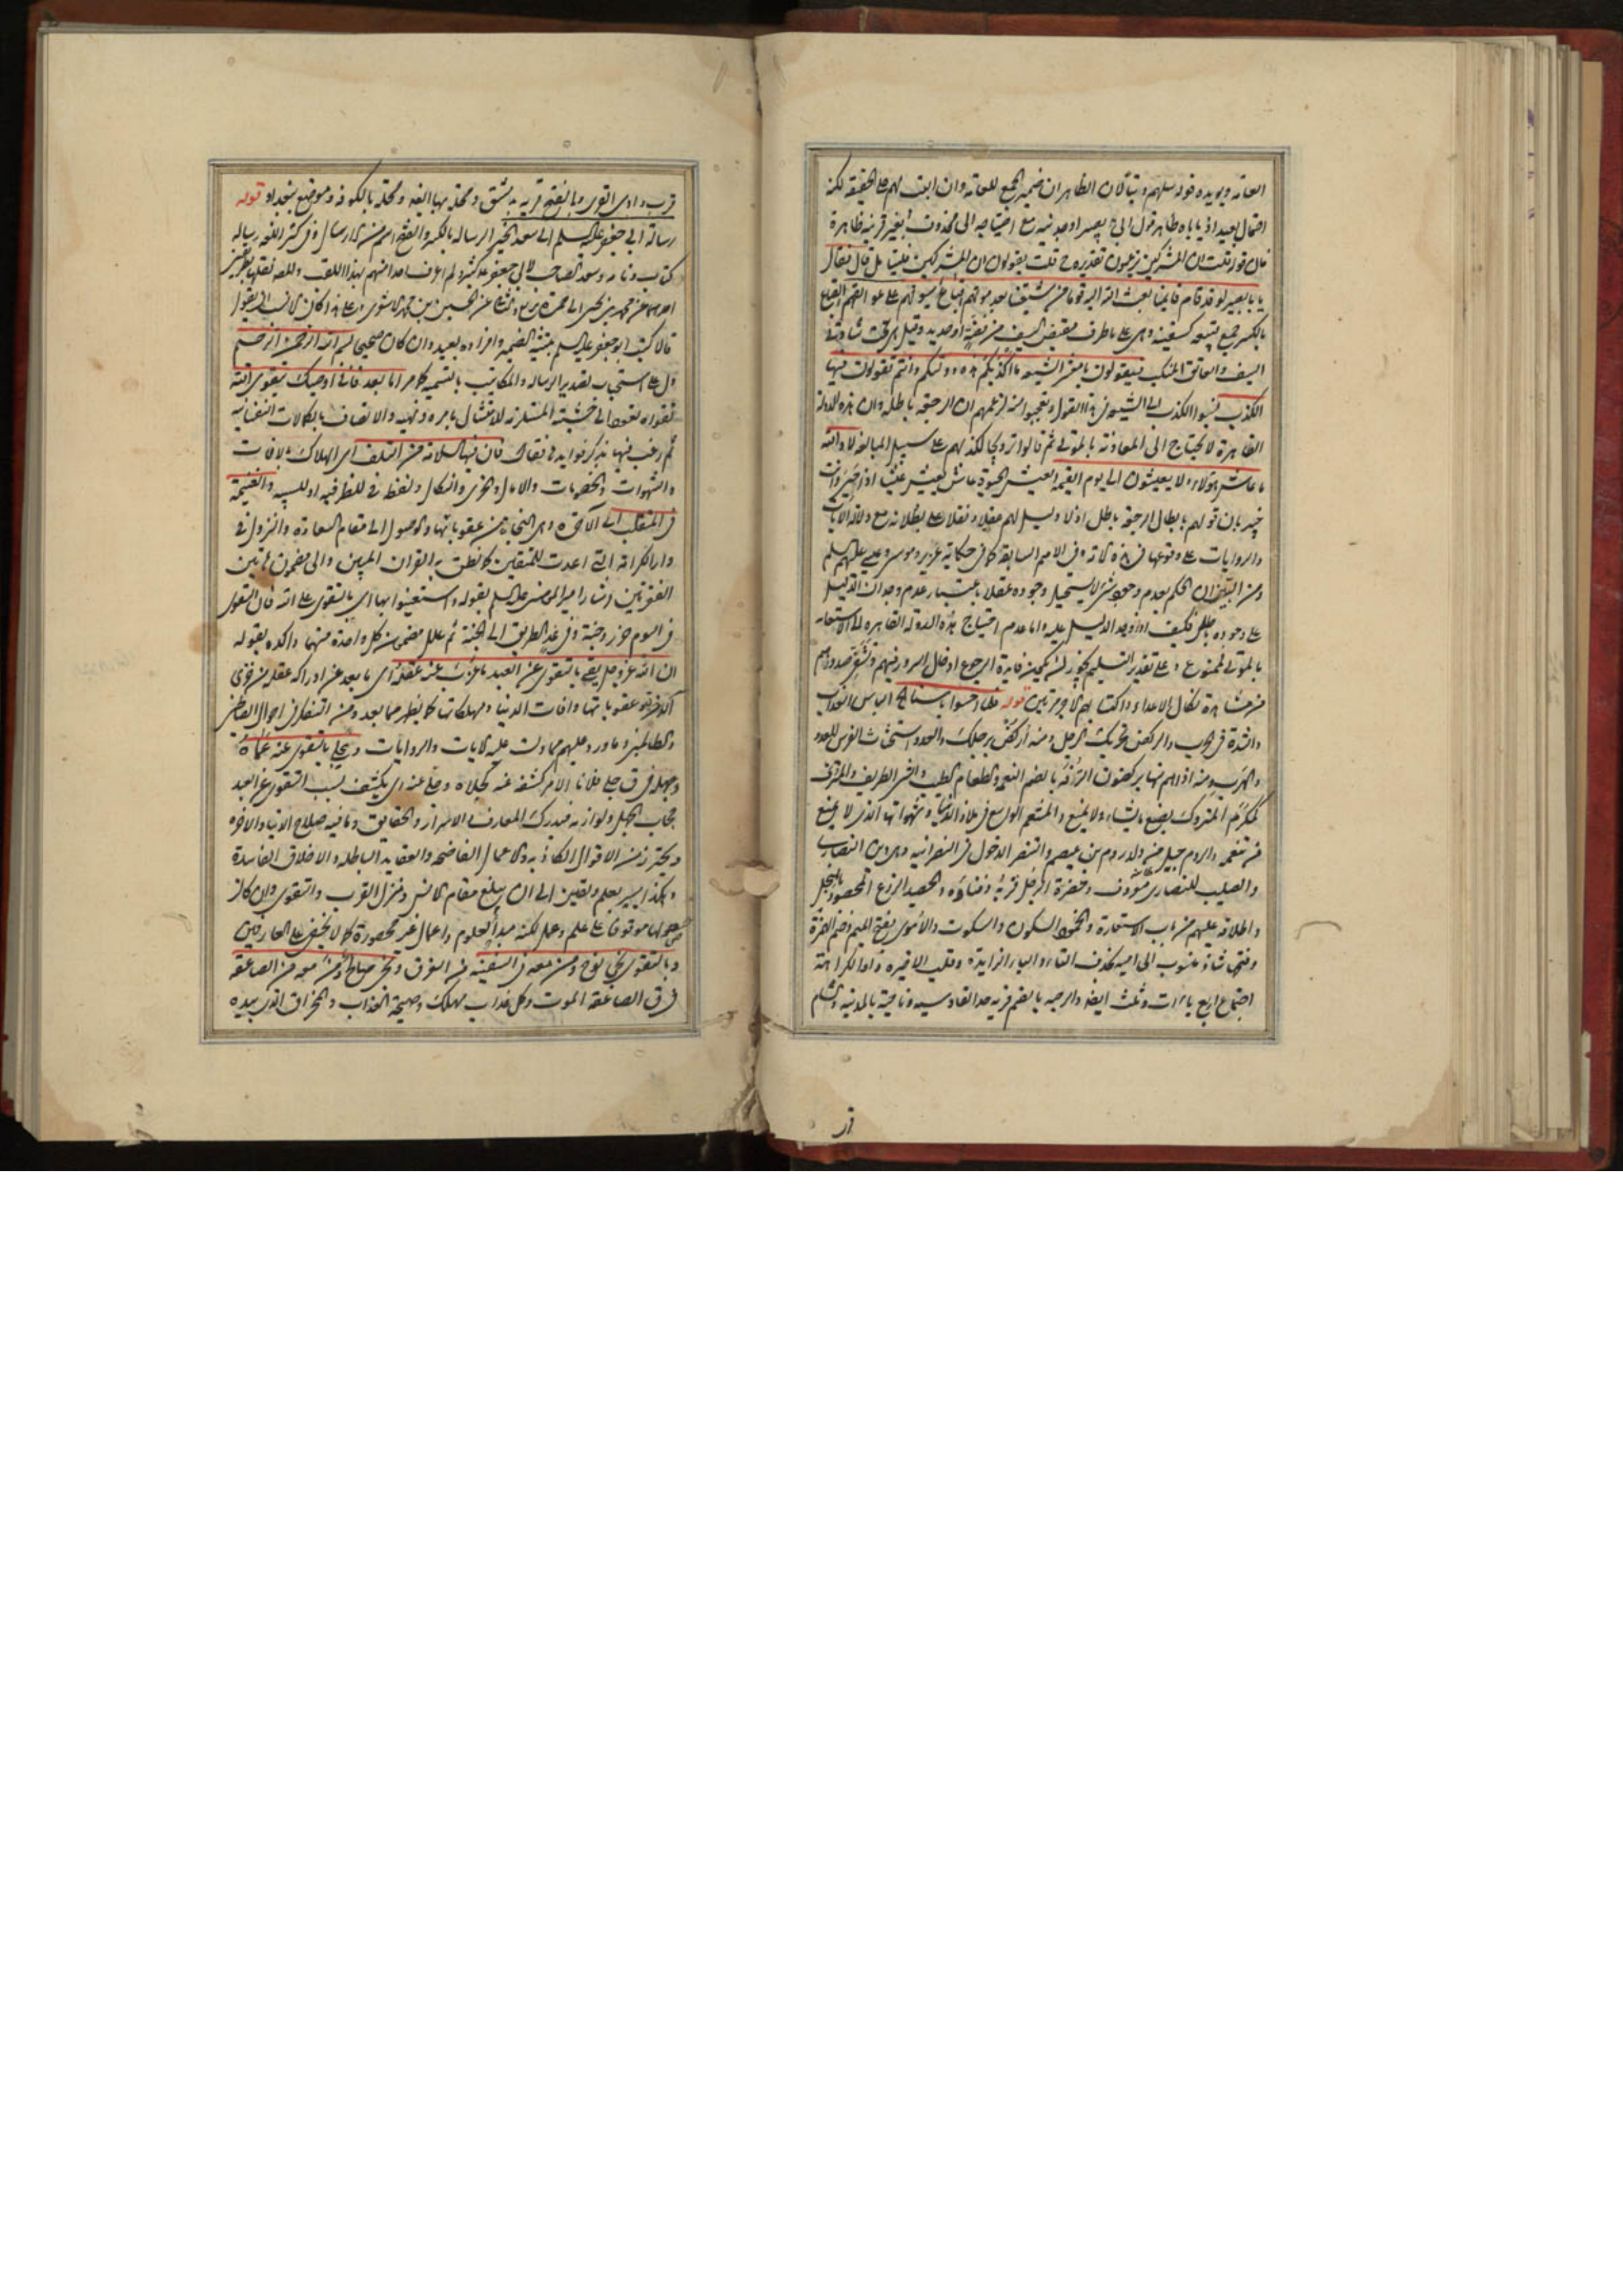 العامه ويؤيده قوله سلهم وتبالان الظاهر ان ضمير الجمع للعامه وان ابيت لهم على الحقيقه لكنه
احتمال بعيد اذ ياباه ظاهر قول ابي بصير او جد نيه مع احتياجه الى محذوف بغير قرينه ظاهرة
فان قوله قلت ان المشركين يزعمون تقديره ح قلت يقولون ان المشركين فليتامل قال فقال
يا با بصير لو قد قام قايمنا بعث الله اليه قوما من شيعتنا بعد موتهم قباع سيوفهم على عواتقهم القباع
بالكسر جمع قبيعه كسفينه وهي على ما طرف مقبض السيف من فضة او حديد وقيل هي تحت شاربي
السيف والعاتق المنكب فيقولون يا معشر الشيعه ما اكذبكم هذه دولتكم وانتم تقولون فيها
الكذب نسبوا الكذب الى الشيعه في هذا القول وتعجبوا منه لزعمهم ان الرجعه باطله وان هذه الدولة
القاهرة لا تحتاج الى المعاونة بالموتى ثم قالوا ترويجا لكذبهم على سبيل المبالغه لا والله
ما عاش هؤلاء ولا يعيشون الى يوم القيمه العيش الحيوة عاش يعيش عيشا اذا حيي وانت
خبير بان قولهم بابطال الرجعه باطل اذ لا دليل لهم عقلا ونقلا على بطلانه مع دلالة الايات
والروايات على وقوعها في هذه الامة وفي الامم السابقة كما في حكاية عزير وموسى وعيسى عليهم السلم
ومن البين ان الحكم بعدم وجود شئ لا يستحيل وجوده عقلا باعتبار عدم وجدان الدليل
على وجوده باطل فكيف اذا وجد الدليل عليه واما عدم احتياج هذه الدولة القاهرة الى الاستعانه
بالموتى فممنوع وعلى تقدير التسليم يجوز ان يكون فايدة الرجوع ادخال السرور فيهم وتشفي صدورهم
من مشاهدة نكال الاعداء واكتسابهم الاجر مرتين قوله فلما احسوا باسنا الخ الباس العذاب
والشدة في الحرب والركض تحريك الرجل ومنه اركض برجلك والعدو استحثاث الفرس للعدو
والهرب ومنه اذا هم منها يركضون الترفه بالضم النعمه والطعام الطيب والشئ الظريف والمترف
كمكرم المتروك يصنع ما يشاء ولا يمنع والمتنعم الواسع في ملاذ الدنيا وشهواتها الذي لا يمنع
من تنعمه والروم جيل من ولد روم بن عيصو والتنصر الدخول في النصرانيه وهي دين النصارى
والصليب للنصارى معروف وحضرة الرجل قربه وفناؤه والحصيد الزرع المحصود بالمنجل
واطلاقه عليهم من باب الاستعارة والخمود السكون والسكوت والاموى بفتح الميم وضم الهمزة
وفتحها شاذ منسوب الى اميه بحذف التاء والياء الزايدة وقلب الاخيره واوا لكراهة
اجتماع اربع ياآت وثلث ايضا والرحبه بالضم قريه حذا القادسيه وناحية بالمدينه والشام
قر
قرب وادى القرى وبالفتح قريه بدمشق ومحلة بها ايضا ومحلة بالكوفه وموضع ببغداد قوله
رسالة ابي جعفر عليه السلم الى سعد الخير الرساله بالكسر والفتح اسم من الارسال وفي كنز اللغه رساله
كتاب ونامه وسعد اصحاب ابي جعفر عليه كثير ولم اعرف احدا منهم بهذا اللقب والمصه نقلها بطريقين
احدهما عن محمد بن يحيى الى حمزة بن بزيع والثاني عن الحسين بن محمد الاشعري وعلى هذا كان الانسب ان يقول
قالا كتب ابو جعفر عليه السلم بتثنية الضمير وافراده بعيد وان كان صحيحا بسم الله الرحمن الرحيم
دل على استحباب تصدير الرساله والمكاتيب بالتسميه كما مر اما بعد فاني اوصيك بتقوى الله
تقواه تعود الى خشيته المستلزمة للامتثال بامره ونهيه والاتصاف بالكمالات النفسانيه
ثم رغب فيها بذكر فوايدها فقال فان فيها السلامة من التلف اى الهلاك بالافات
والشهوات والخصومات والامال والخزى والنكال ولفظة في للظرفيه او للسببيه والغنيمة
في المنقلب اى الاخرة وهى النجاة من عقوباتها والوصول الى مقام السعادة والنزول في
دار الكرامة التى اعدت للمتقين كما نطق به القران المبين والى مضمون هاتين
الفقرتين اشار امير المؤمنين عليه السلم بقوله واستعينوا بها اى بالتقوى على الله فان التقوى
في اليوم حرز وجنة وفي غد الطريق الى الجنة ثم علل مضمون كل واحدة منهما واكده بقوله
ان الله عز وجل يقى بالتقوى عن العبد ما عزب عنه عقله اى ما بعد عن ادراكه عقله من خزى
الاخرة وعقوباتها وافات الدنيا ومهلكاتها كما يظهر مما بعد ومن التفكر في احوال الفاسقين
والظالمين وما ورد عليهم مما دلت عليه الايات والروايات ويجلى بالتقوى عنه عماه
وجهله في ق جلى فلانا الامر كشفه عنه كجلاه وجلى عنه اى يكشف بسبب التقوى عن العبد
حجاب الجهل ولوازمه فيدرك المعارف والاسرار والحقايق وما فيه صلاح الدنيا والاخره
ويحترز من الاقوال الكاذبه والاعمال الفاضحه والعقايد الباطله والاخلاق الفاسدة
وهكذا يسير بعلم ويقين الى ان يبلغ مقام الانس ومنزل القرب والتقوى وان كان
حصولها موقوفا على علم وعمل لكنه مبدأ لعلوم واعمال غير محصورة كما لا يخفى على العارفين
وبالتقوى نجى نوح ومن معه في السفينه من الغرق ونجى صالح ومن معه من الصاعقه
في ق الصاعقه الموت وكل عذاب مهلك وصيحة العذاب والمخراق الذى بيده